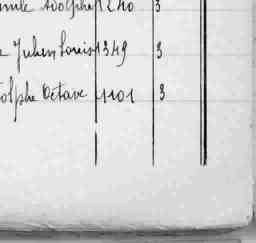 Adolphe 1240 3
Julien Louis 1349 3
olphe Octave 1101 3